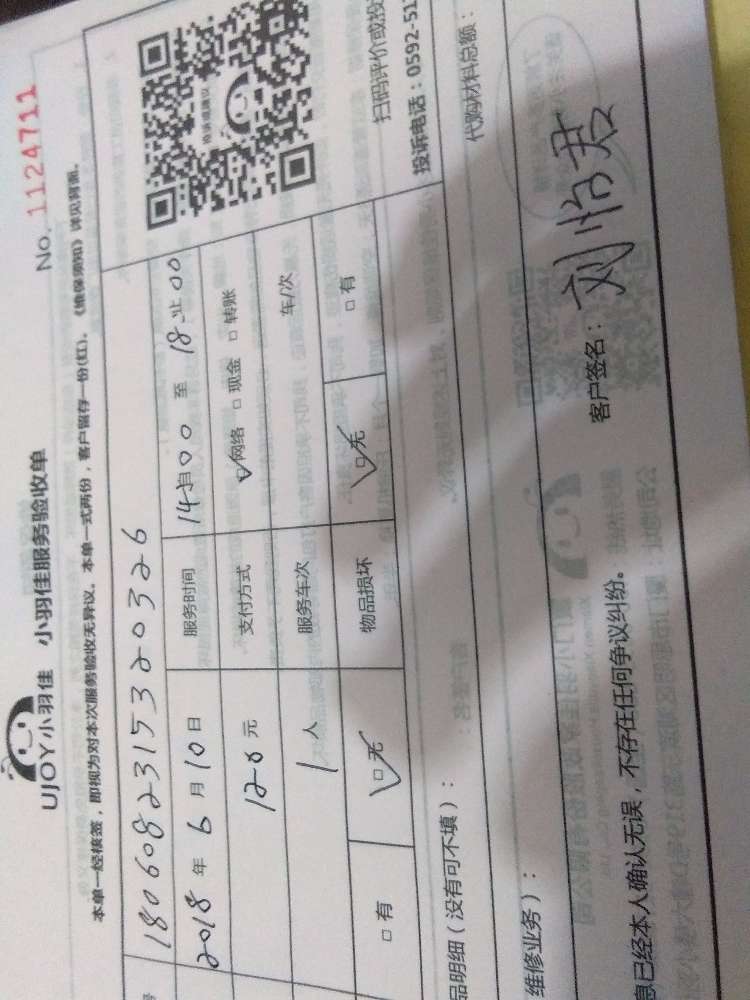 UJOY小羽佳 小羽佳服务验收单
No. 1124711
本单一经核签，即视为对本次服务验收无异议。本单一式两份，客户留存一份(红)。《维保须知》详见背面。
号 180608231532 0326
2018 年 6 月 10 日 服务时间 14 时 00 至 18 止 00
120 元 支付方式 ☑网络 □现金 □转账
1 人 服务车次 车/次
□有 ☑无 物品损坏 ☑无 □有
投诉或建议
扫码评价或投
投诉电话：0592-51
品明细（没有可不填）：
代购材料总额：
维修业务）：
息已经本人确认无误，不存在任何争议纠纷。 客户签名：刘怡君